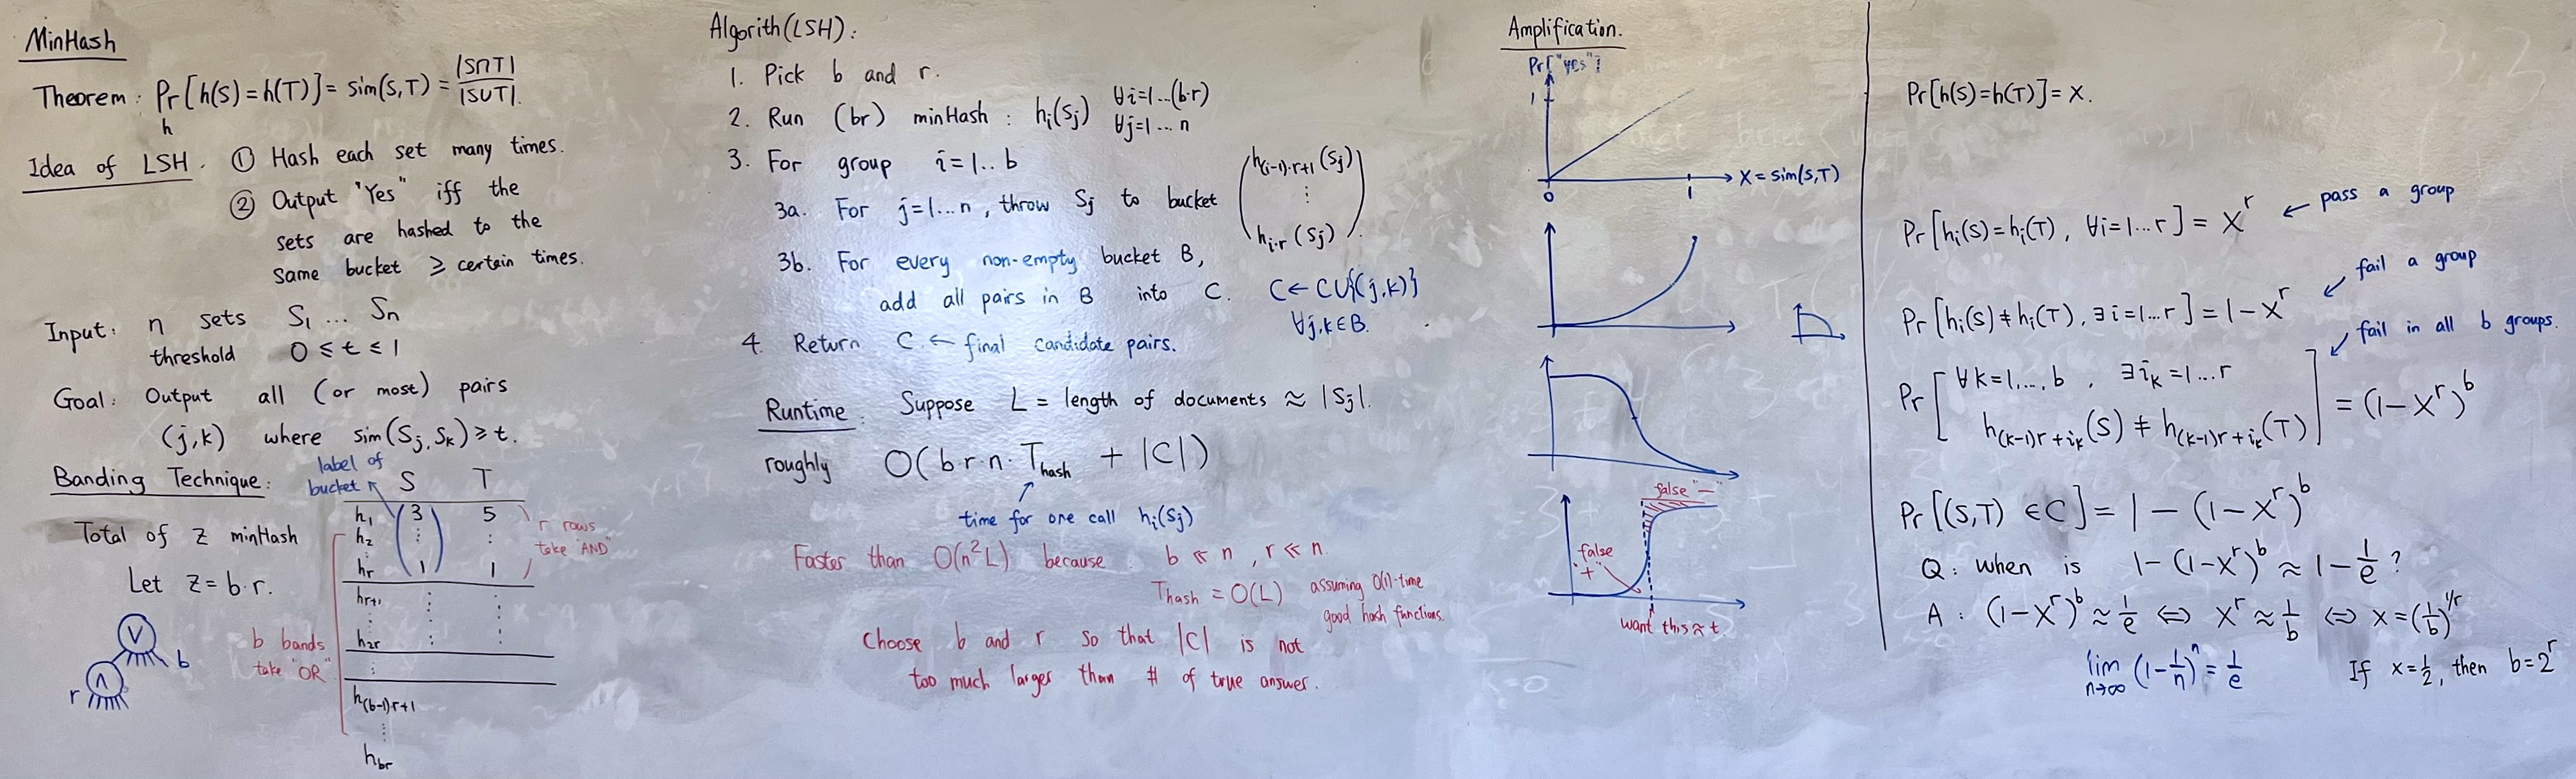 MinHash
Theorem: Pr_h [h(S)=h(T)] = sim(S,T) = |S∩T| / |S∪T|.
Idea of LSH. ① Hash each set many times.
② Output "Yes" iff the
sets are hashed to the
same bucket ≥ certain times.
Input: n sets S₁ ... Sₙ
threshold 0 ≤ t ≤ 1
Goal: Output all (or most) pairs
(j,k) where sim(Sⱼ, Sₖ) ≥ t.
Banding Technique:
label of
bucket
S T
Total of z minHash
Let z = b·r.
h₁ 3 5
h₂ ⋮ ⋮
⋮
hᵣ 1 1
r rows
take "AND"
h_{r+1} ⋮ ⋮
⋮
h_{2r} ⋮ ⋮
⋮
h_{(b-1)r+1}
⋮
h_{br}
b bands
take "OR"
∨ b
r ∧
Algorith (LSH):
1. Pick b and r.
2. Run (br) minHash: hᵢ(Sⱼ) ∀i=1...(b·r)
∀j=1...n
3. For group i=1..b
3a. For j=1...n, throw Sⱼ to bucket
h_{(i-1)·r+1}(Sⱼ)
⋮
h_{i·r}(Sⱼ)
3b. For every non-empty bucket B,
add all pairs in B into C. C ← C∪{(j,k)}
∀j,k∈B.
4. Return C ← final candidate pairs.
Runtime: Suppose L = length of documents ≈ |Sⱼ|.
roughly O(b·r·n·T_hash + |C|)
time for one call hᵢ(Sⱼ)
Faster than O(n²L) because: b ≪ n, r ≪ n
T_hash = O(L) assuming O(1)-time
good hash functions.
Choose b and r so that |C| is not
too much larger than # of true answer.
Amplification.
Pr["yes"]
1
0 1 x = sim(S,T)
false "—"
false
"+"
want this ≈ t.
Pr[h(S)=h(T)] = x.
Pr[hᵢ(S)=hᵢ(T), ∀i=1...r] = x^r ← pass a group
Pr[hᵢ(S)≠hᵢ(T), ∃i=1...r] = 1-x^r ↙ fail a group
↙ fail in all b groups.
Pr[∀k=1,...,b, ∃iₖ=1...r
h_{(k-1)r+iₖ}(S) ≠ h_{(k-1)r+iₖ}(T)] = (1-x^r)^b
Pr[(S,T) ∈ C] = 1 - (1-x^r)^b
Q: when is 1-(1-x^r)^b ≈ 1-1/e?
A: (1-x^r)^b ≈ 1/e ⇔ x^r ≈ 1/b ⇔ x = (1/b)^{1/r}
lim_{n→∞} (1-1/n)^n = 1/e If x=1/2, then b=2^r